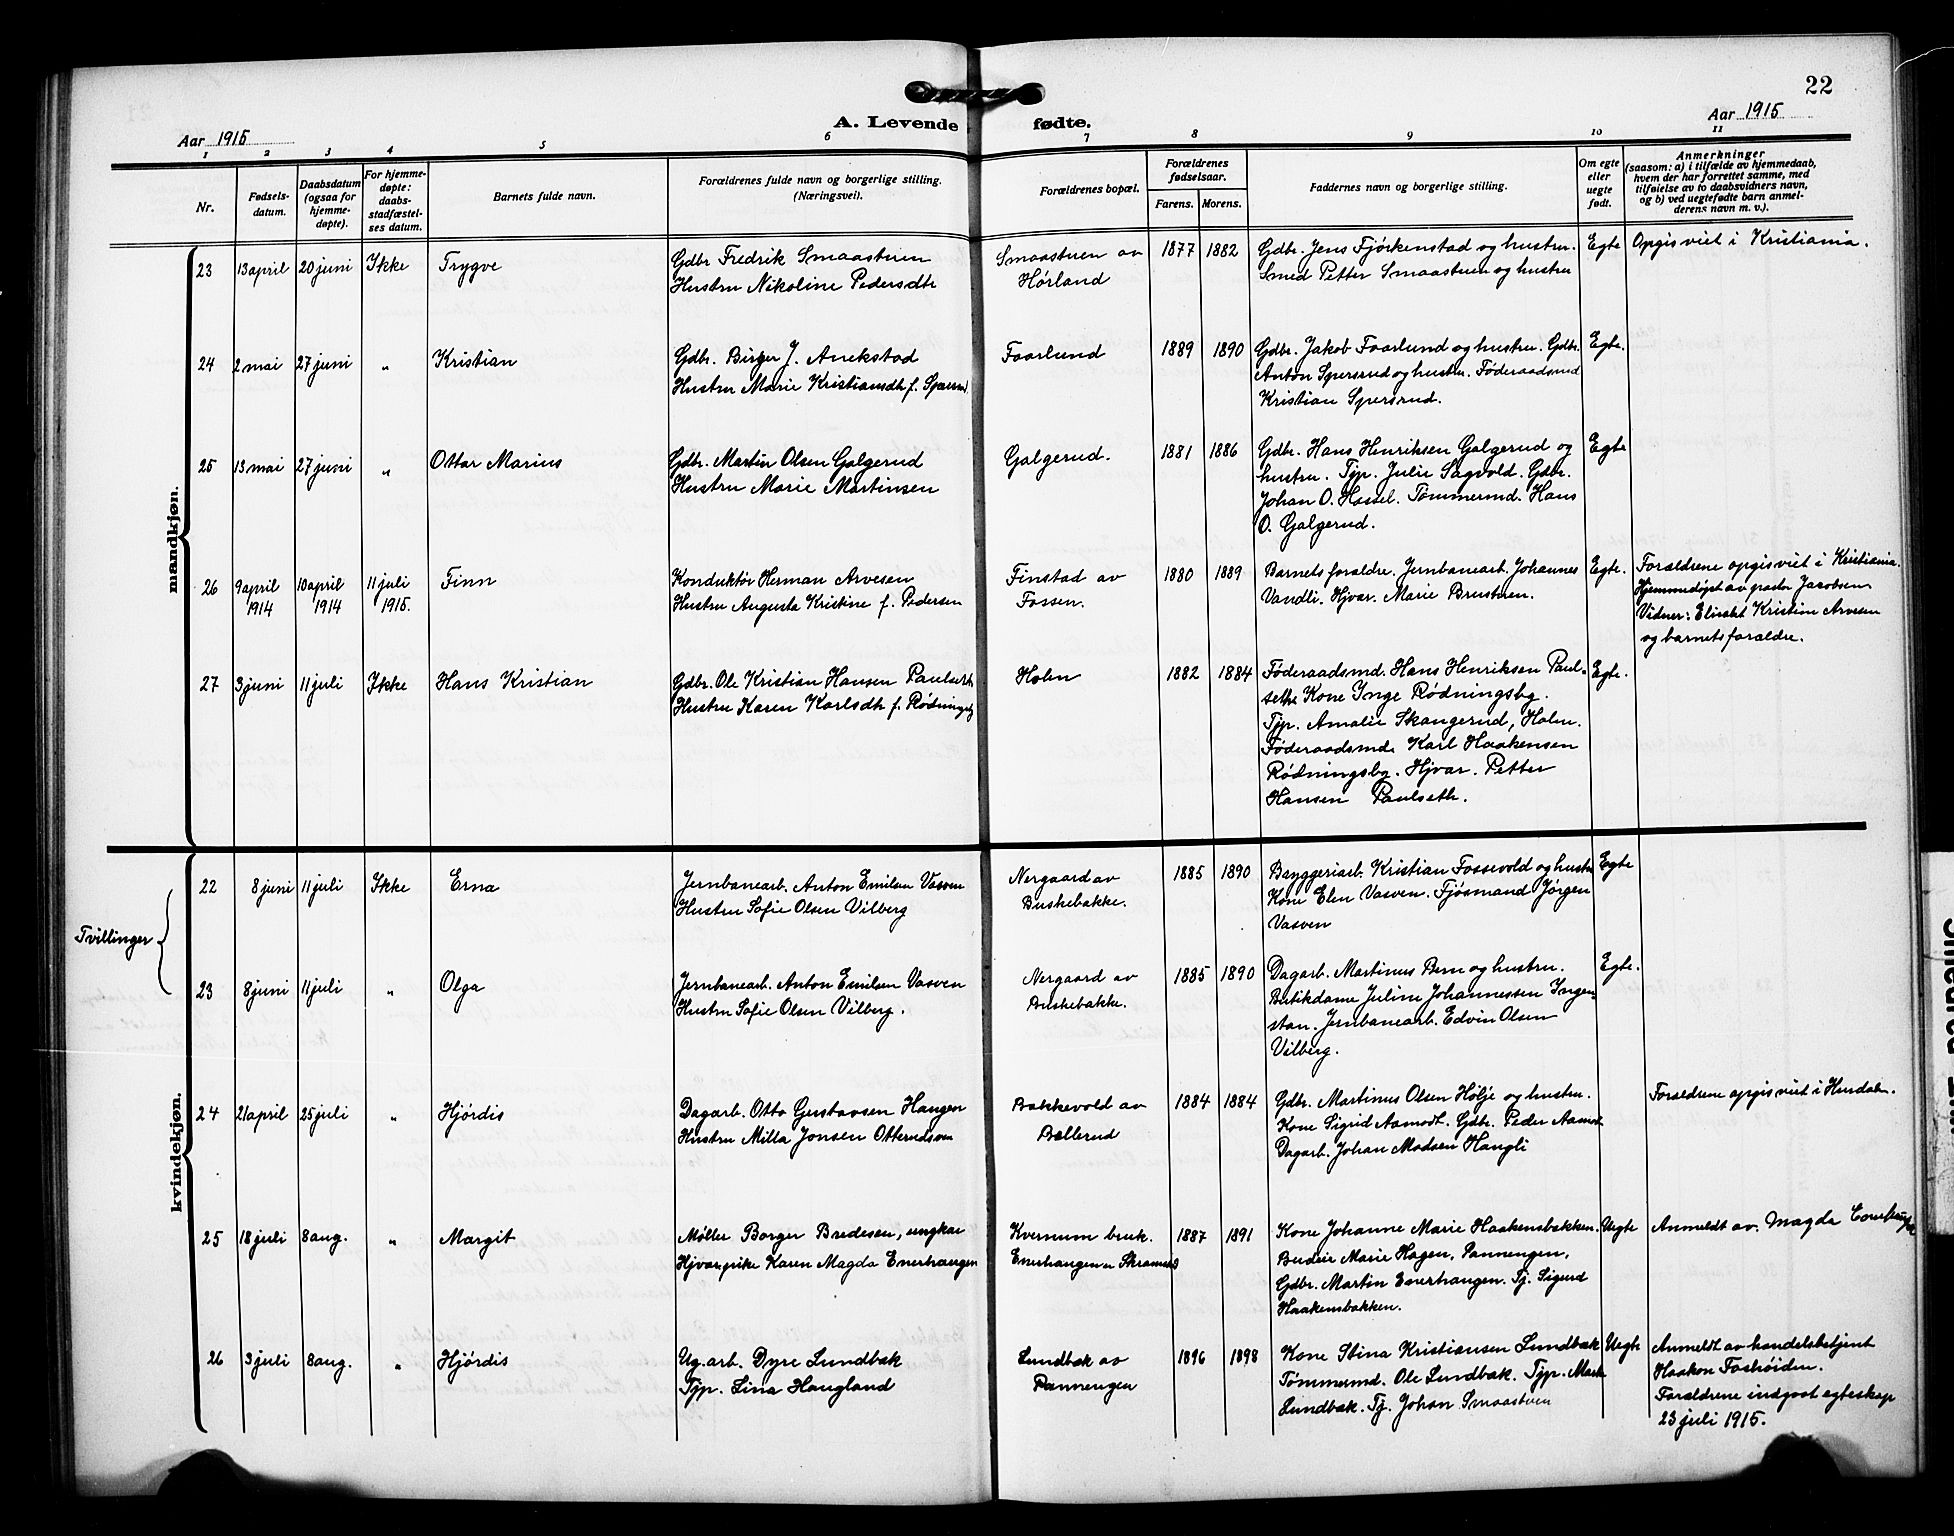 22
A. Levende fødte.
Aar 1915
Aar 1915
1 2 3 4 5 6 7 8 9 10 11
Nr.
Fødsels-
datum.
Daabsdatum
(ogsaa for
hjemme-
døpte).
For hjemme-
døpte:
daabs-
stadfæstel-
ses datum.
Barnets fulde navn.
Forældrenes fulde navn og borgerlige stilling.
(Næringsvei).
Forældrenes bopæl.
Forældrenes
fødselsaar.
Farens. Morens.
Faddernes navn og borgerlige stilling.
Om egte
eller
uegte
født.
Anmerkninger
(saasom: a) i tilfælde av hjemmedaab,
hvem der har forrettet samme, med
tilføielse av to daabsvidners navn,
og b) ved uegtefødte barn anmel-
derens navn m. v.).
mandkjøn.
23 13 april 20 juni Ikke Trygve
Gdbr Fredrik Smaastuen
Hustru Nikoline Pedersdtr
Smaastuen av
Hørland
1877 1882
Gdbr. Jens Fjørkenstad og hustru.
Smed Petter Smaastuen og hustru
Egte
Opgis viet i Kristiania.
24 2 mai 27 juni " Kristian
Gdbr. Birger J. Anekstad
Hustru Marie Kristiansdtr f. Spersrud
Faarlund
1889 1890
Gdbr. Jakob Faarlund og hustru. Gdbr.
Anton Spersrud og hustru. Føderaadsmd
Kristian Spersrud.
Egte.
25 13 mai 27 juni " Ottar Marius
Gdbr. Martin Olsen Galgerud
Hustru Marie Martinsen
Galgerud.
1881 1886
Gdbr. Hans Henriksen Galgerud og
hustru. Tjp. Julie Sagvold. Gdbr.
Johan O. Hassel. Tømmermd. Hans
O. Galgerud.
Egte
26 9 april 1914 10 april 1914 11 juli 1915. Finn
Konduktør Herman Arvesen
Hustru Augusta Kristine f. Pedersen
Finstad av
Fossen.
1880 1889
Barnets foraldre. Jernbanearb. Johannes
Vandli. Hjvar. Marie Brustuen.
Egte.
Foraldrene opgis viet i Kristiania.
Hjemmedøpt av prester Jacobsen
Vidner: Elisabet Kristine Arvesen
og barnets foraldre.
27 3 juni 11 juli Ikke Hans Kristian
Gdbr. Ole Kristian Hansen Paulseth
Hustru Karen Karlsdtr f. Rødningsby
Holm
1882 1884
Føderaadsmd. Hans Henriksen Paul-
seth. Kone Inge Rødningsby.
Tjp. Amalie Skangerud, Holm.
Føderaadsmd. Karl Haakensen
Rødningsby. Hjvar. Petter
Hansen Paulseth.
Egte.
kvindekjøn.
Tvillinger
22 8 juni 11 juli Ikke Erna
Jernbanearb. Anton Emilsen Vasven
Hustru Sofie Olsen Vilberg
Nergaard av
Buskebakke.
1885 1890
Bryggeriarb. Kristian Fossevold og hustru
Kone Elen Vasven. Fjøsmand Jørgen
Vasven
Egte
23 8 juni 11 juli " Olga
Jernbanearb. Anton Emilsen Vasven
Hustru Sofie Olsen Vilberg.
Nergaard av
Buskebakke.
1885 1890
Dagarb. Martinus Bern og hustru.
Butikdame Juline Johannessen Ingen-
stan. Jernbanearb. Edvin Olsen
Vilberg.
Egte.
24 21 april 25 juli " Hjördis
Dagarb. Otto Gustavsen Haugen
Hustru Milla Jonsen Otterudsøen
Bakkevold av
Bøllerud
1884 1884
Gdbr. Martinus Olsen Hølje og hustru.
Kone Sigrid Aamodt. Gdbr. Peder Aamodt
Dagarb. Johan Madsen Haugli
Foraldrene opgis viet i Hurdalen.
25 18 juli 8 aug. " Margit
Møller Borger Bredesen, ungkar
Hjvar. pike Karen Magda Enerhaugen
Kvernum bruk.
Enerhaugen u Skrameis
1887 1891
Kone Johanne Marie Haakensbakken.
Budeie Marie Hagen, Pannengen.
Gdbr. Martin Enerhaugen. Tj. Sigurd
Haakensbakken.
Uegte
Anmeldt av. Magda Enerhaugen
26 3 juli 8 aug. " Hjördis
Ug. arb. Dyre Lundbak
Tjp. Lina Haugland
Lundbak av
Pannengen
1896 1898
Kone Stina Kristiansen Lundbak
Tømmermd. Ole Lundbak. Tjp. Marte
Lundbak. Tj. Johan Smaastuen
Uegte
Anmeldt av handelsbetjent
Haakon Foshøiden.
Foraldrene indgaat egteskap
23 juli 1915.